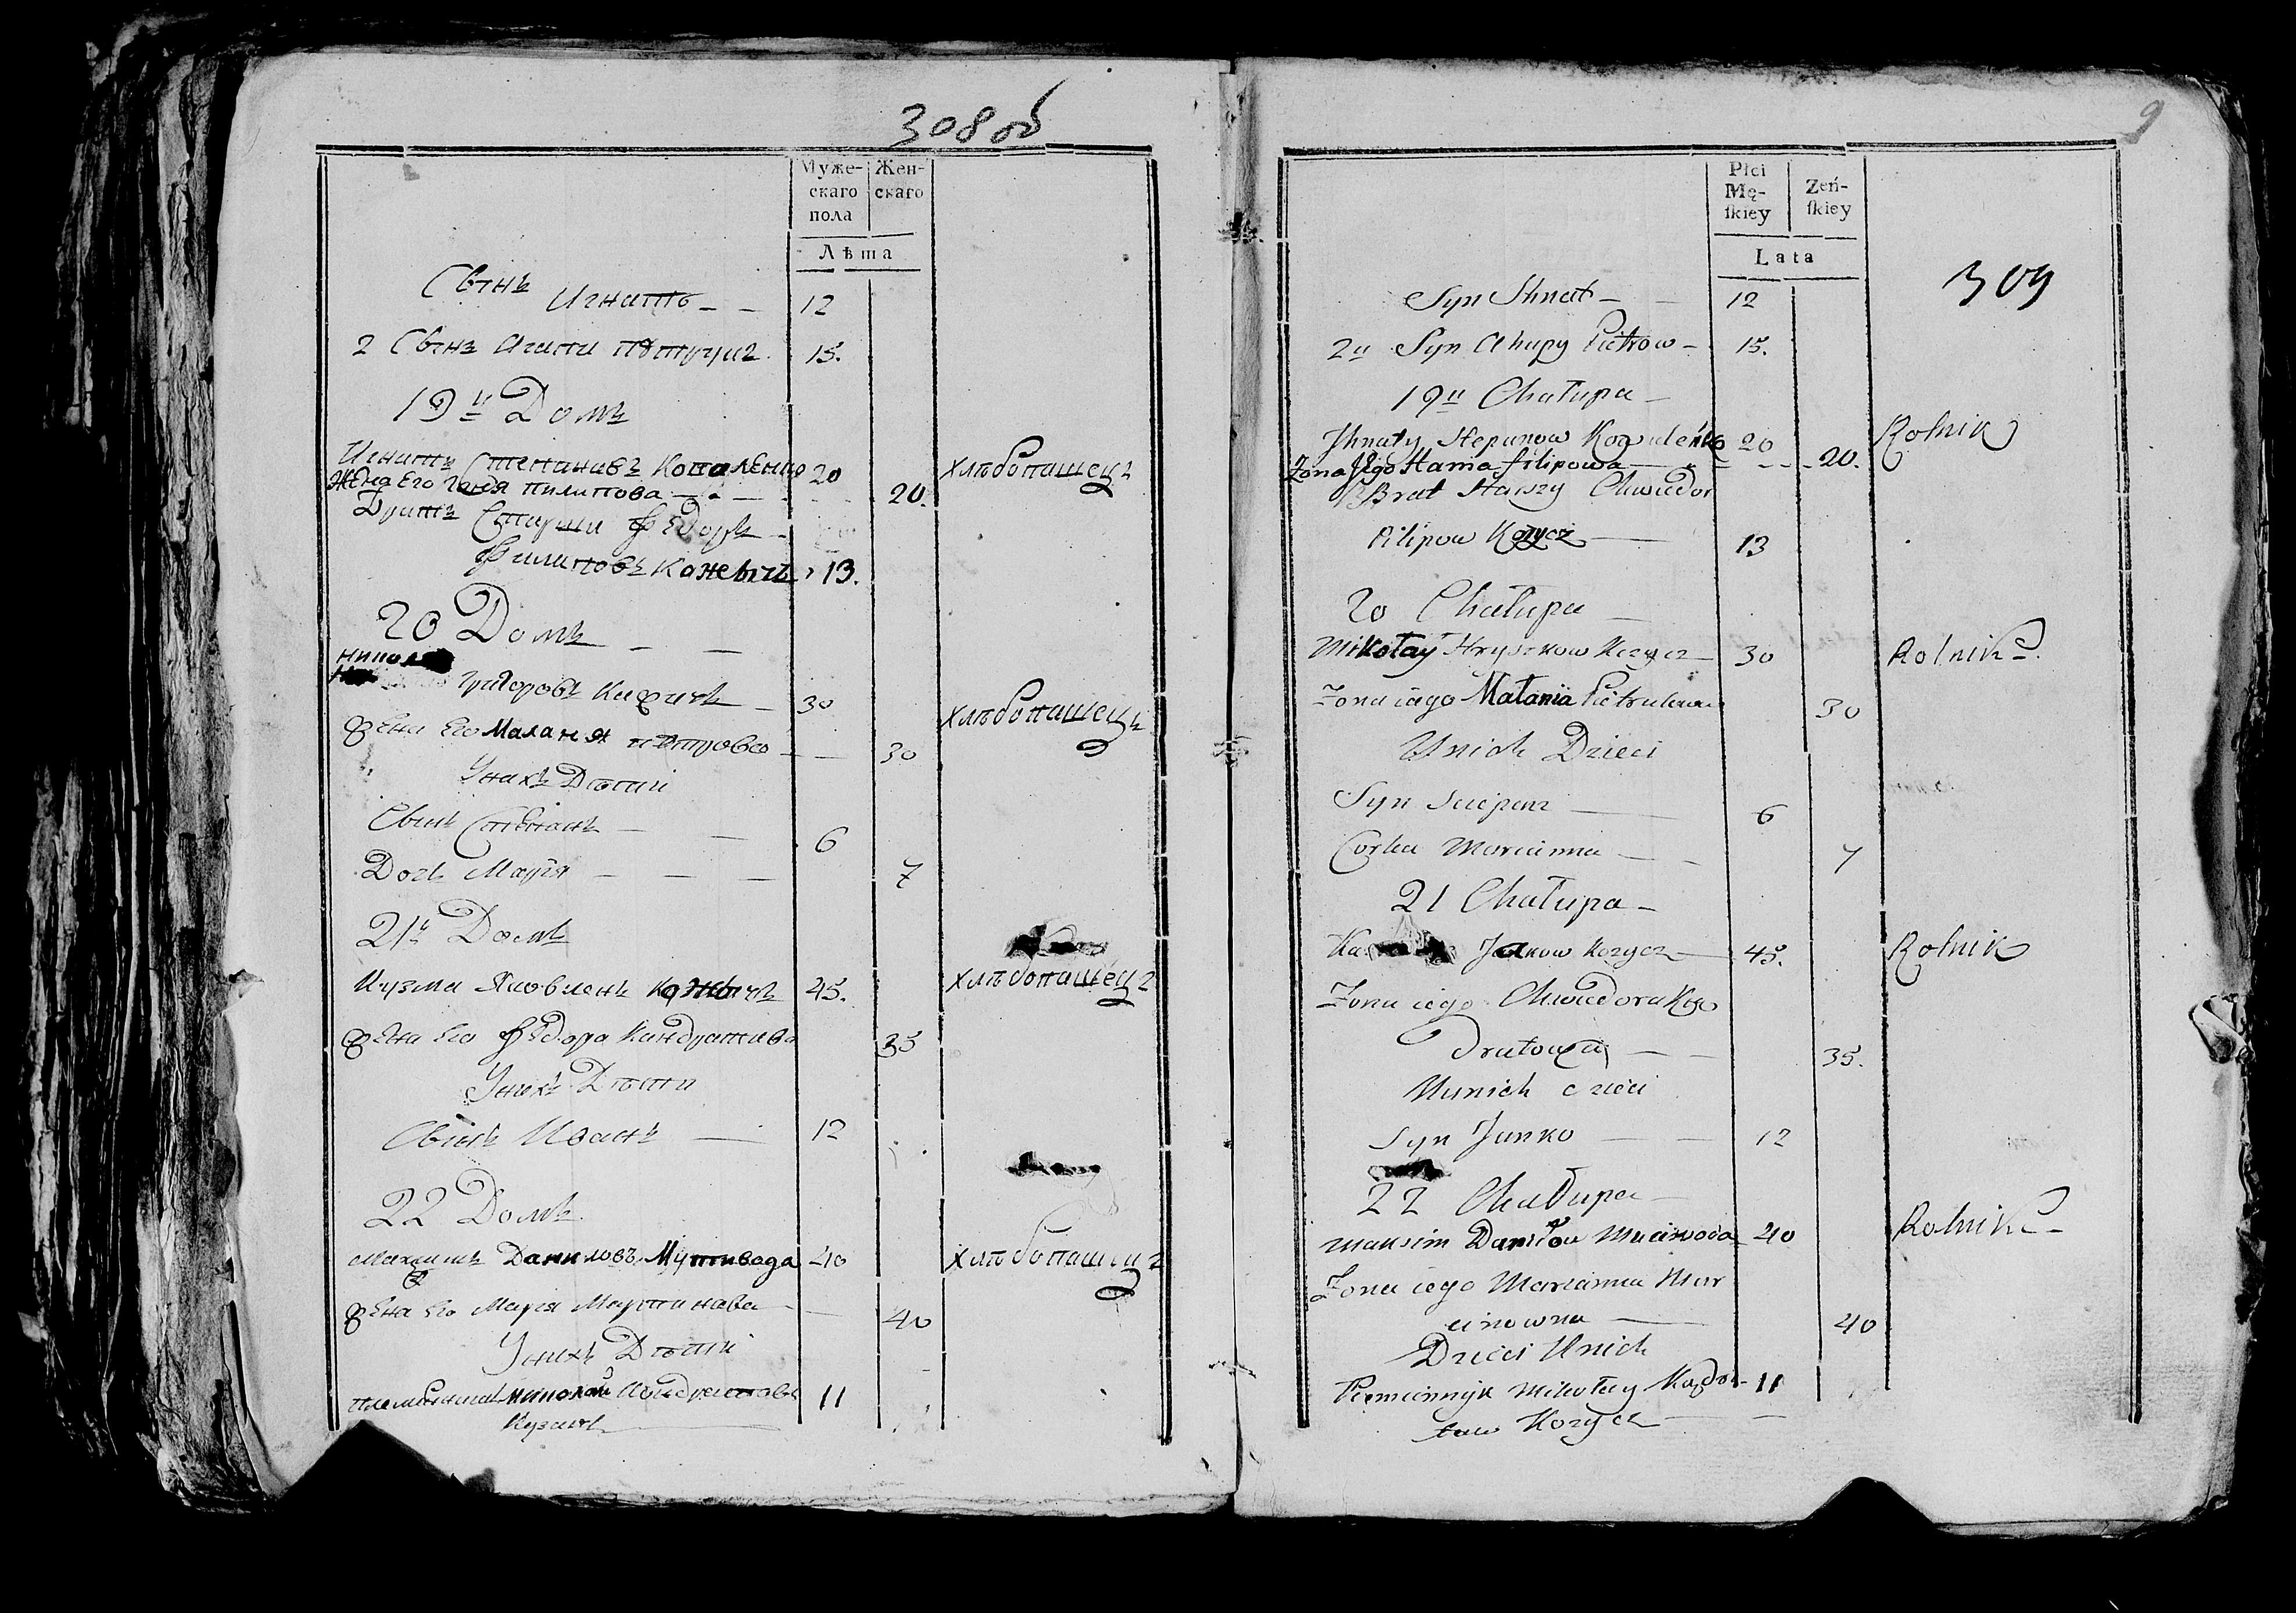 308 об
Муже-
скаго
пола
Жен-
скаго
Лѣта
Сынъ
Игнатъ 12
2 Сынъ 15.
19й Домъ
Игнатъ Степановъ Коваленко 20 хлѣбопашецъ
Жена Его Ганя Пилипова 20.
Братъ Старши Федоръ
Филиповъ Кожевичъ 13.
20 Домъ
Никол
Григоровъ 30 хлѣбопашецъ
жена Его Маланя петровсо 30
Унихъ Дѣтти
Сынъ Степанъ 6
Дочь Марія 7
21й Домъ
Кузма Яковлевъ Кожевичъ 45. хлѣбопашецъ
жена Его Федора Кандратиева 35
Унихъ Дѣтти
Сынъ Иванъ 12
22 Домъ
Максимъ Даниловъ Мутивода 40 хлѣбопашецъ
жена Его Марія Мартинава 40
Унихъ Дѣтти
племянникъ николай Кондратовъ 11
9
Płci
Mę-
skiey
Żeń-
skiey
Lata
309
Syn Ihnat 12
2u Syn Ahapy Pietrow 15.
19u Chałupa
Ihnaty Stepanow Kowalenko 20 Rolnik
Żona Jego Hania filipowa 20.
Brat Starszy Chwiedor
Pilipow Kozycz 13
20 Chałupa
Mikołay Hryszkow Kozycz 30 Rolnik
Żona iego Małania Pietrukowa 30
Unich Dzieci
Syn Sciepan 6
Corka Marianna 7
21 Chałupa
Ka Jakow Kozycz 45. Rolnik
Żona iego Chwiedora Kon
dratowa 35.
Unich dzieci
Syn Janko 12
22 Chałupa
Maksim Daniłow Muciwoda 40 Rolnik
Żona iego Marianna Mar
cinowna 40
Dzieci Unich
Plemiennyk Mikołay Kądra- 11
tow Kozycz